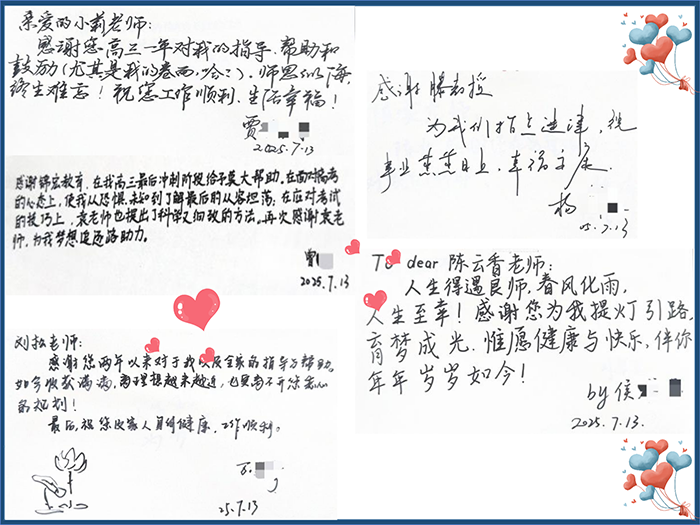 亲爱的小莉老师：
感谢您高三一年对我的指导、帮助和
鼓励（尤其是我的卷面，哈哈），师恩似海
终生难忘！祝您工作顺利、生活幸福！
贾
2025.7.13
感谢锦宏教育，在我高三最后冲刺阶段给予莫大帮助。在面对高考
的心态上，使我从恐惧、未知到了解最后的从容坦荡；在应对考试
的技巧上，袁老师也提出了科学又细致的方法。再次感谢袁老
师，为我梦想道路助力。
曾
2025.7.13
刘松老师：
感谢您两年以来对于我以及全家的指导与帮助。
如今收获满满，离理想越来越近，也更离不开您悉心
的规划！
最后，祝您及家人身体健康，工作顺利。
25.7.13
感谢滕教授
为我们指点迷津，祝
事业蒸蒸日上，幸福
杨
25.7.13
To dear 陈云香老师：
人生得遇良师，春风化雨，
人生至幸！感谢您为我提灯引路，
育梦成光。惟愿健康与快乐，伴你
年年岁岁如今！
by 侯
2025.7.13.